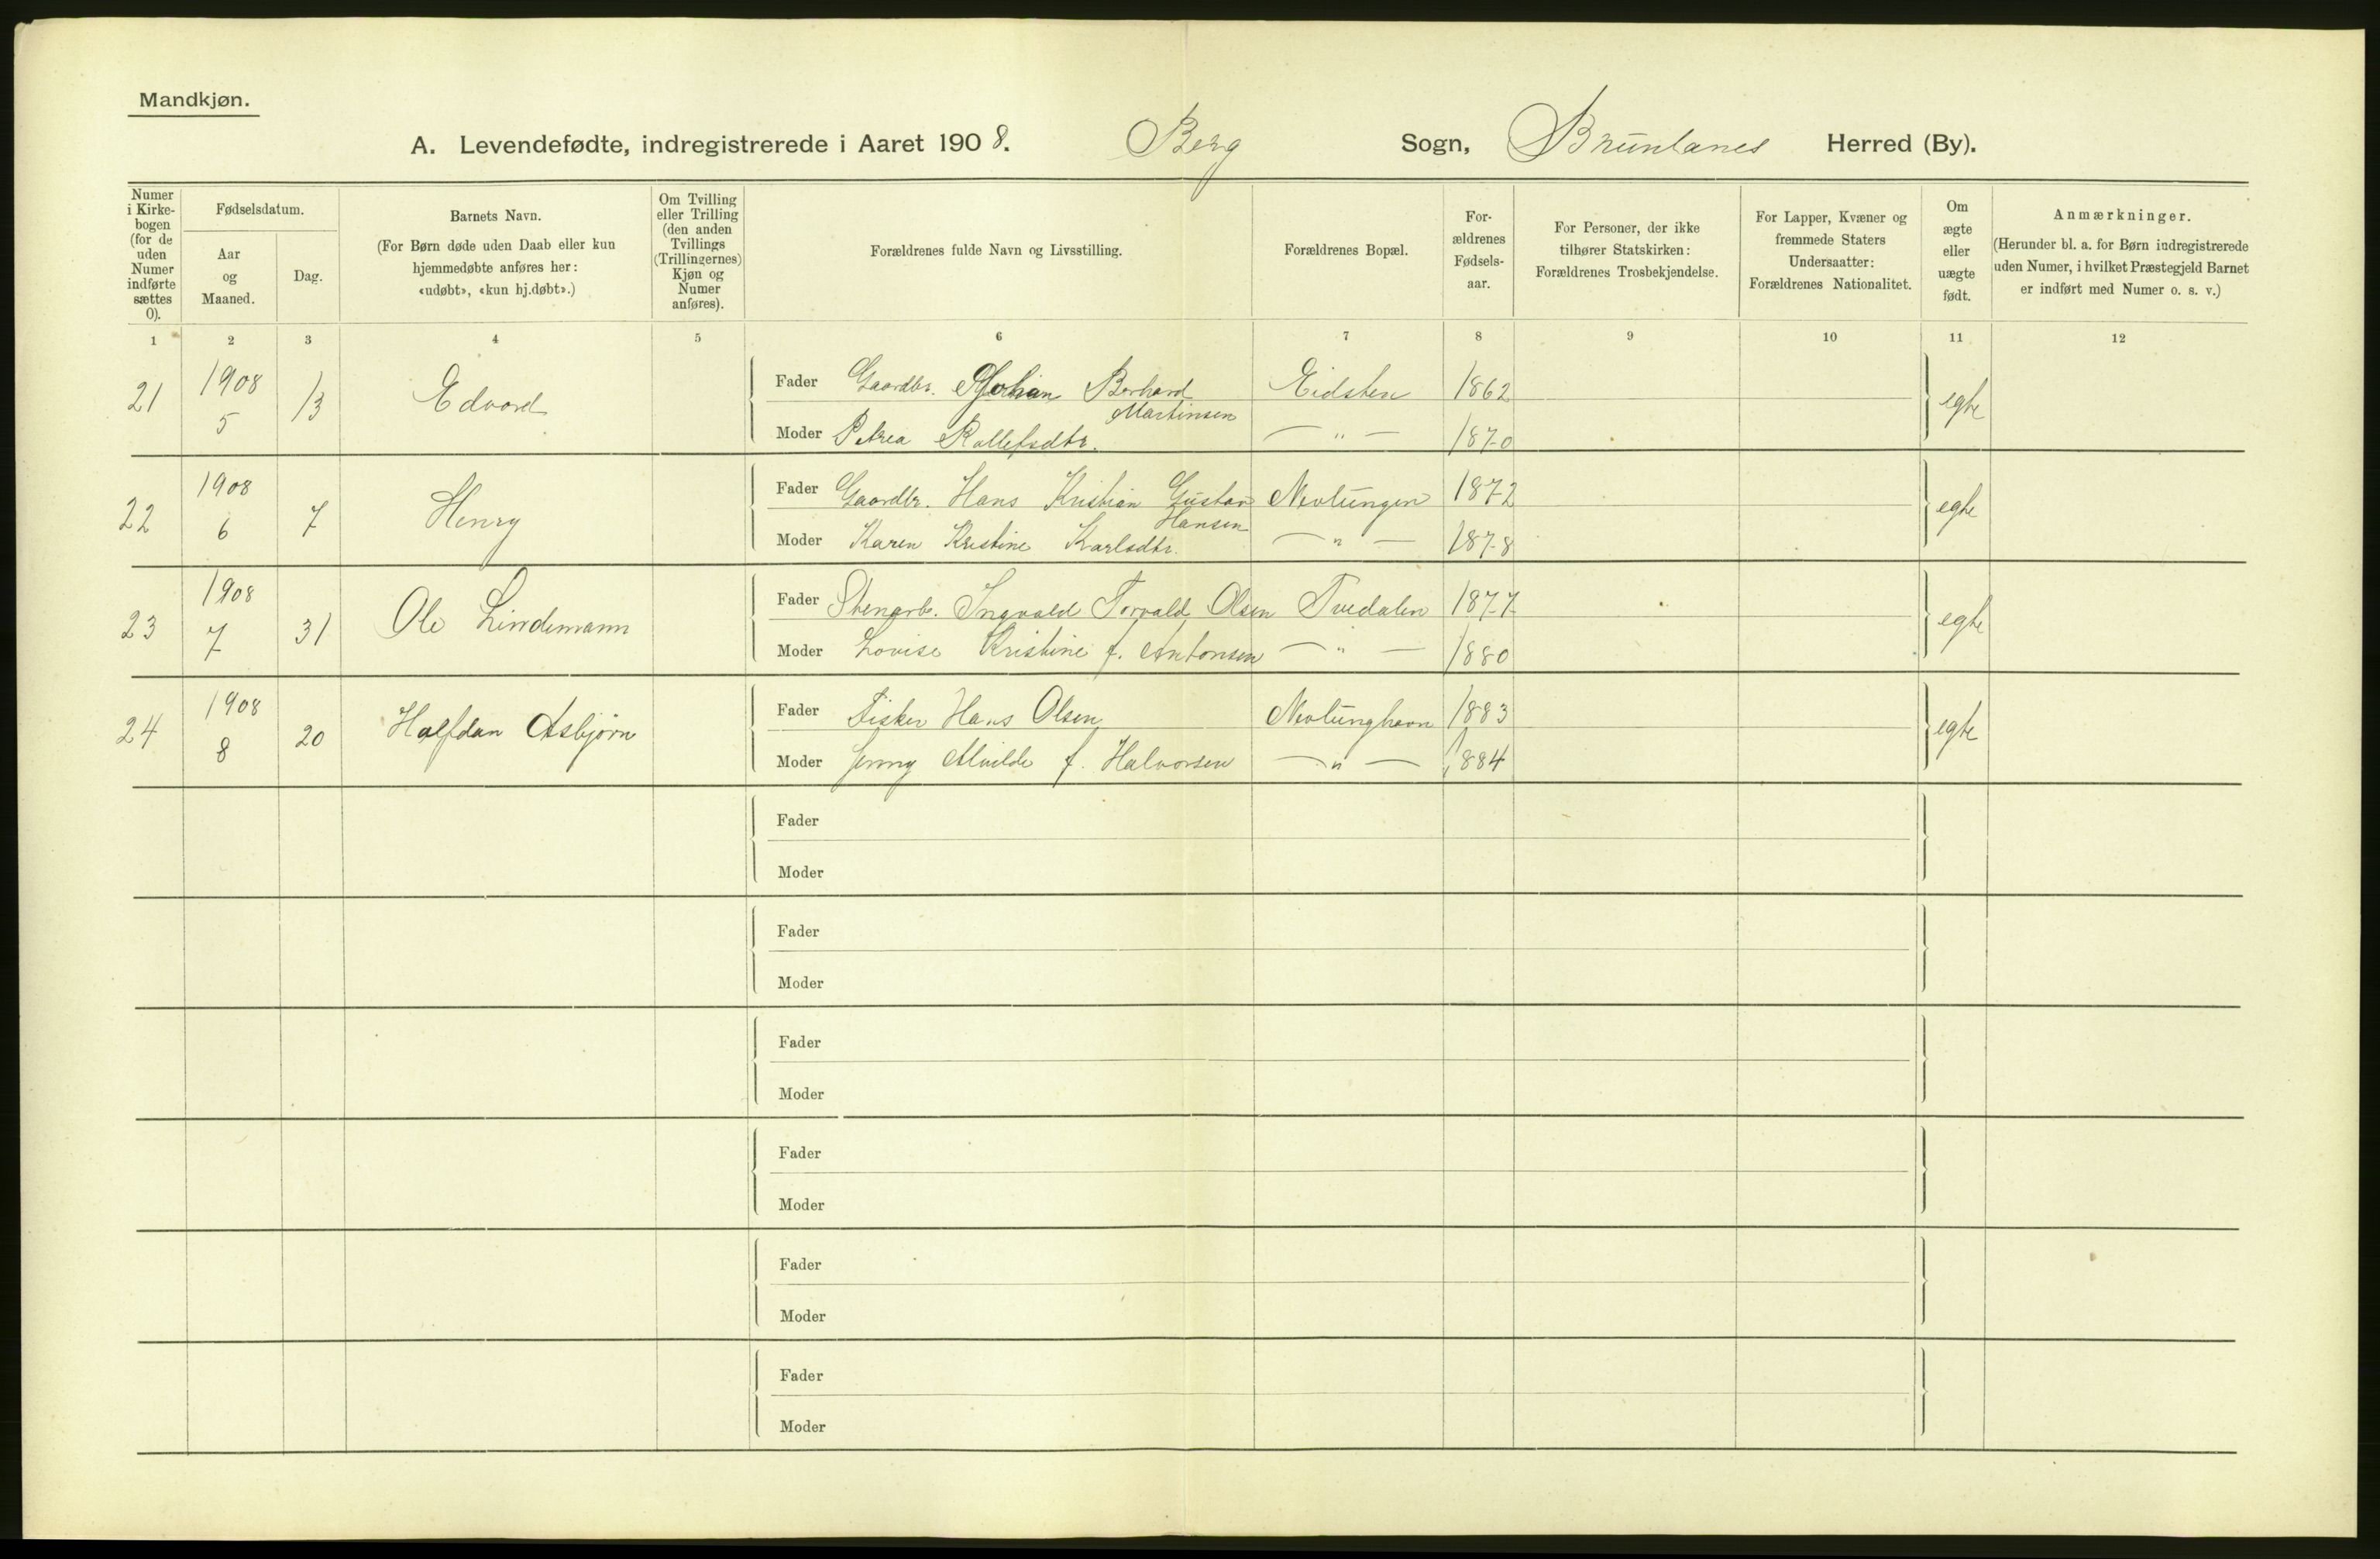 Mandkjøn.
A. Levendefødte, indregistrerede i Aaret 1908. Berg Sogn, Brunlanes Herred (By).
Numer i Kirkebogen (for de uden Numer indførte sættes 0).
Fødselsdatum.
Aar og Maaned.
Dag.
Barnets Navn.
(For Børn døde uden Daab eller kun hjemmedøbte anføres her: «udøbt», «kun hj.døbt».)
Om Tvilling eller Trilling (den anden Tvillings (Trillingernes) Kjøn og Numer anføres).
Forældrenes fulde Navn og Livsstilling.
Forældrenes Bopæl.
Forældrenes Fødselsaar.
For Personer, der ikke tilhører Statskirken: Forældrenes Trosbekjendelse.
For Lapper, Kvæner og fremmede Staters Undersaatter: Forældrenes Nationalitet.
Om ægte eller uægte født.
Anmærkninger.
(Herunder bl. a. for Børn indregistrerede uden Numer, i hvilket Præstegjeld Barnet er indført med Numer o. s. v.)
1 2 3 4 5 6 7 8 9 10 11 12
21 1908 5 13 Edvard
Fader Gaardbr. Johan Berhard Martinsen Eidsten 1862 egte
Moder Petrea Rollefsdtr. — " — 1870
22 1908 6 7 Henry
Fader Gaardbr. Hans Kristian Gustav Hansen Nevlungen 1872 egte
Moder Karen Kristine Karlsdtr. — " — 1878
23 1908 7 31 Ole Lindemann
Fader Stenarb. Ingvald Torvald Olsen Tvedalen 1877 egte
Moder Lovise Kristine f. Antonsen — " — 1880
24 1908 8 20 Halfdan Asbjørn
Fader Fisker Hans Olsen Nevlunghavn 1883 egte
Moder Jenny Alvilde f. Halvorsen — " — 1884
Fader
Moder
Fader
Moder
Fader
Moder
Fader
Moder
Fader
Moder
Fader
Moder